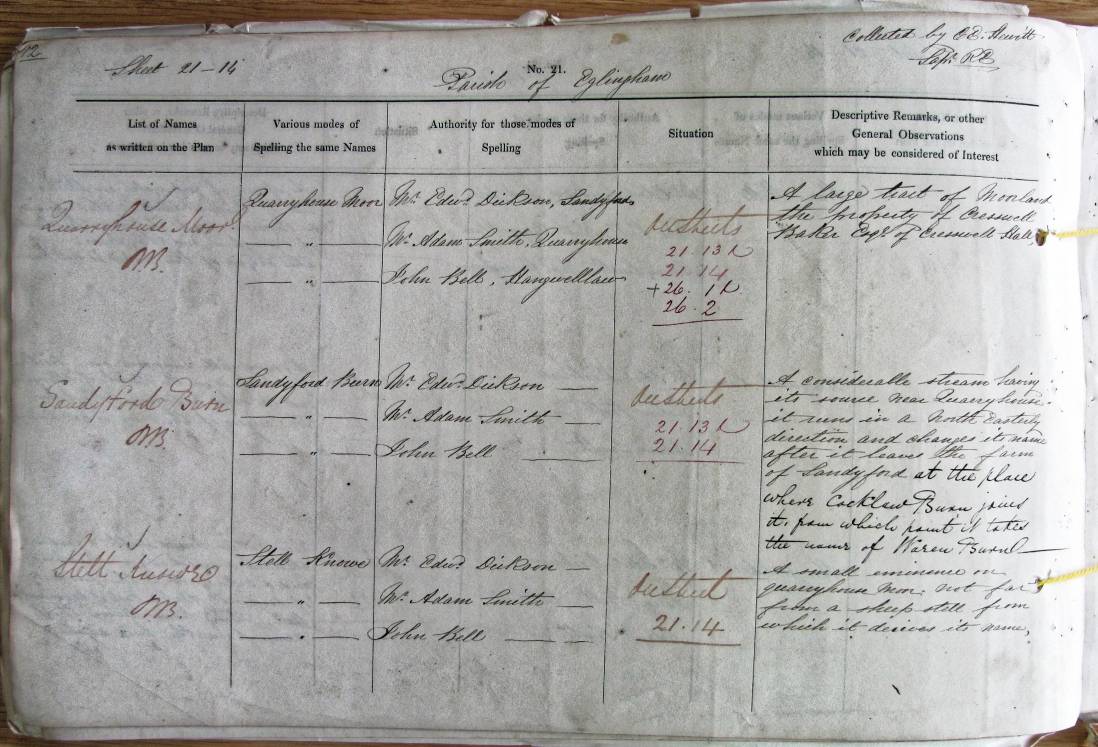 Sheet 21-14
No. 21.
Parish of Eglingham
Collected by
Sapr. RE
List of Names
as written on the Plan
Various modes of
Spelling the same Names
Authority for those modes of
Spelling
Situation
Descriptive Remarks, or other
General Observations
which may be considered of Interest
Quarryhouse Moor
Quarryhouse Moor
Mr. Edwd. Dickson, Sandyford
— " —
Mr. Adam Smith, Quarryhouse
— " —
John Bell, Hangwelllaw
On Sheets
21.13
21.14
+26.1
26.2
A large tract of Moorland
the property of Cresswell
Baker Esqr. of Cresswell Hall,
Sandyford Burn
Sandyford Burn
Mr. Edwd. Dickson —
— " —
Mr. Adam Smith —
— " —
John Bell —
On Sheets
21.13
21.14
A considerable stream having
its source near Quarryhouse.
it runs in a North Easterly
direction and changes its name
after it leaves the farm
of Sandyford at the place
where Cocklaw Burn joins
it, from which point it takes
the name of Waren Burn —
Stell Knowe
Stell Knowe
Mr. Edwd. Dickson —
— " —
Mr. Adam Smith —
— " —
John Bell —
On Sheet
21.14
A small eminence on
quarryhouse Moor, not far
from a sheep stell from
which it derives its name,